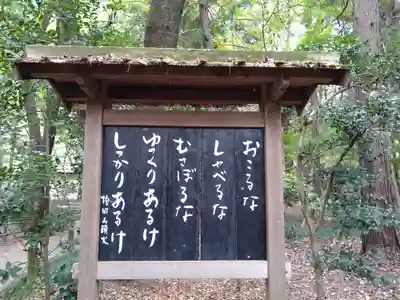 おこるな
しゃべるな
むさぼるな
ゆっくりあるけ
しっかりあるけ